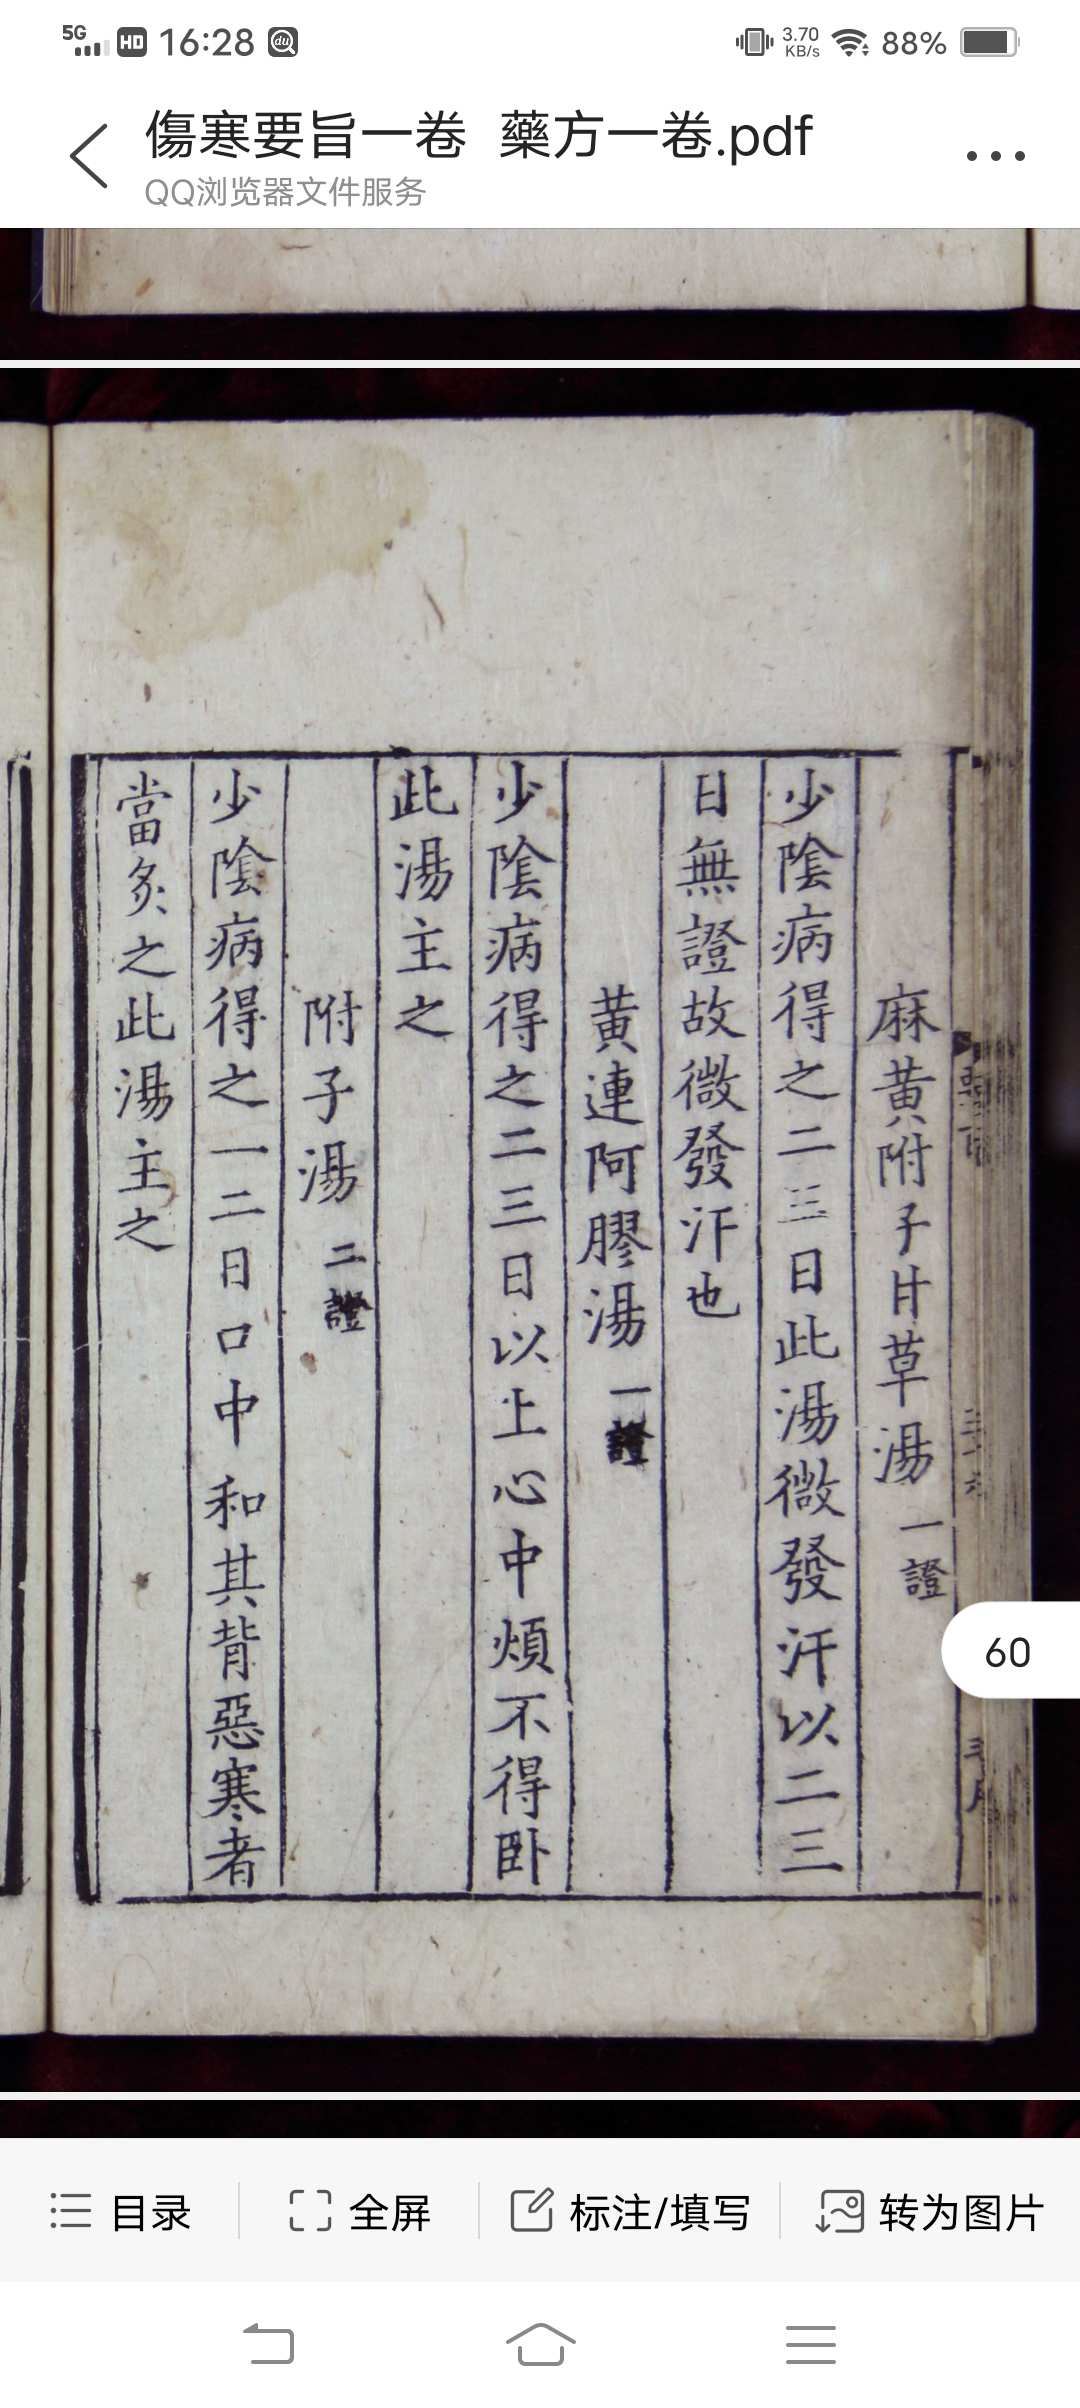 5G HD 16:28 3.70 KB/s 88%
傷寒要旨一卷 藥方一卷.pdf
QQ浏览器文件服务
麻黄附子甘草湯一證
少陰病得之二三日此湯微發汗以二三
日無證故微發汗也
黄連阿膠湯一證
少陰病得之二三日以上心中煩不得卧
此湯主之
附子湯二證
少陰病得之一二日口中和其背惡寒者
當灸之此湯主之
60
目录 全屏 标注/填写 转为图片